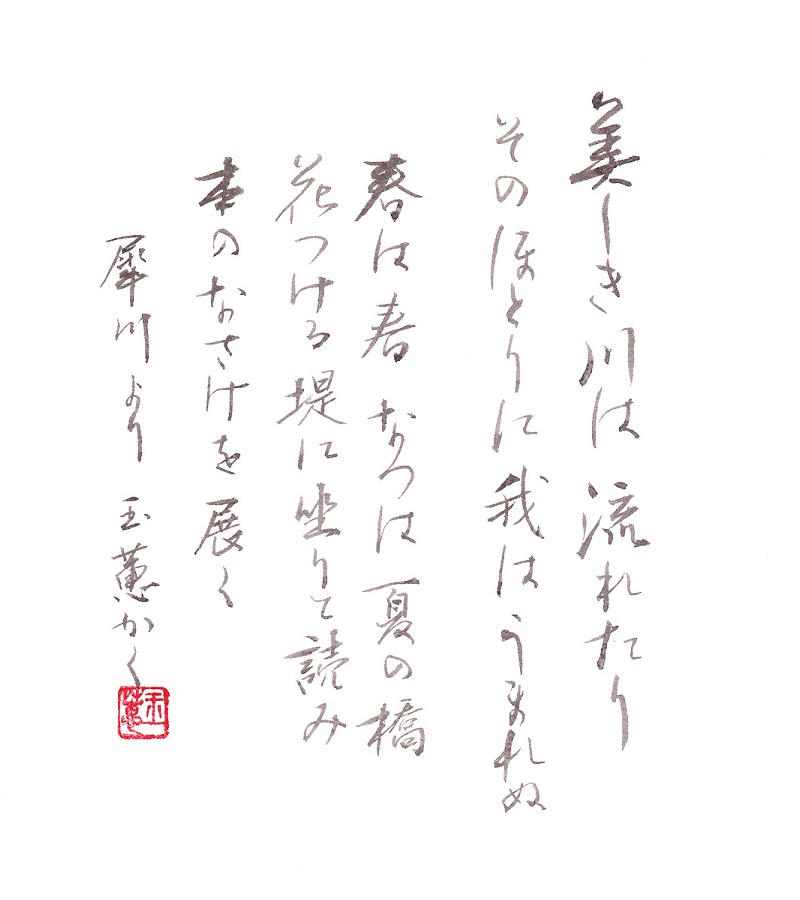 美しき川は 流れたり
そのほとりに 我はうまれぬ
春は春 なつは 夏の橋
花つける 堤に坐りて 読み
本のなさけを 展く
犀川より 玉蕙かく